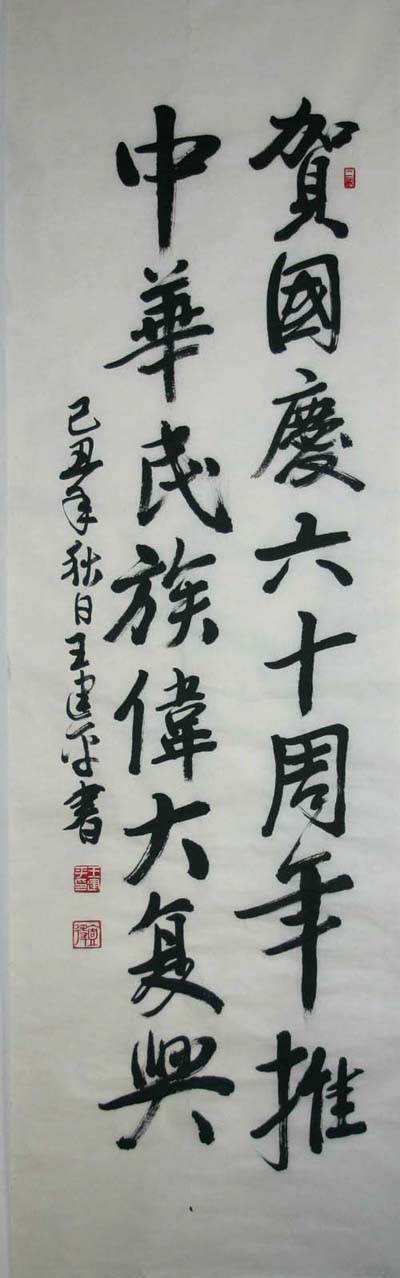 賀國慶六十周年推
中華民族偉大复興
己丑年秋日王建平書